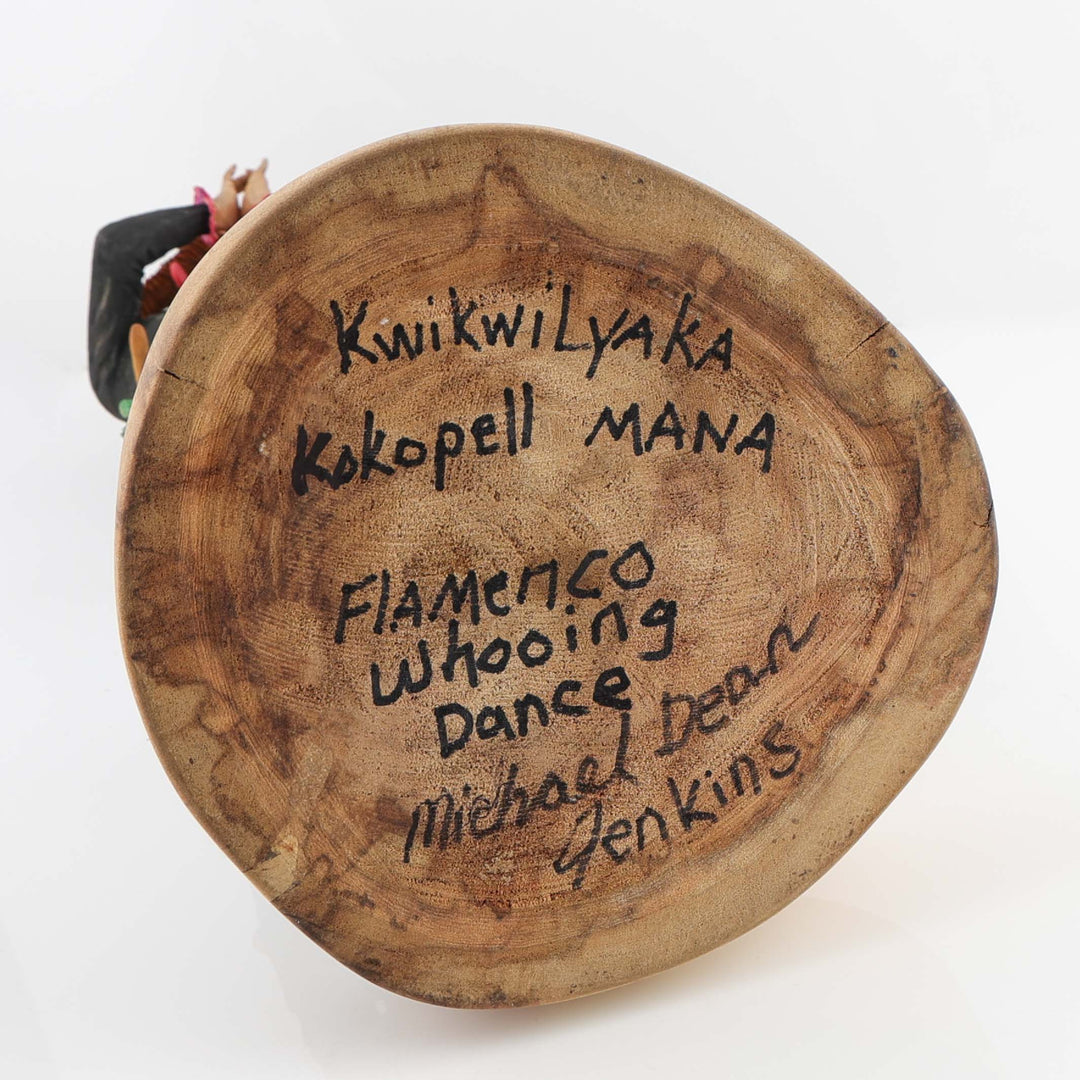 KwikwiLyaKa
Kokopell MANA
FlAMenco
Whooing
Dance
Michael Dean
Jenkins